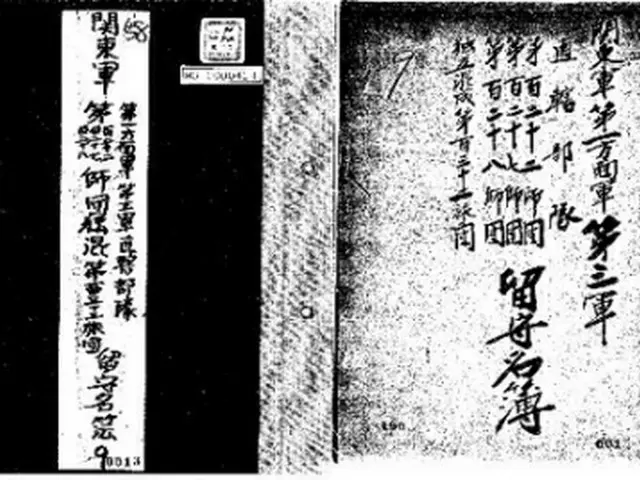 関東軍第一方面軍第三軍
直轄部隊
第百二十二師団
第百二十七師団
第百二十八師団
独立混成第百三十二旅団
留守名簿
関東軍
第一方面軍第三軍直轄部隊
師団独混第
旅団
留守名簿
9
0013